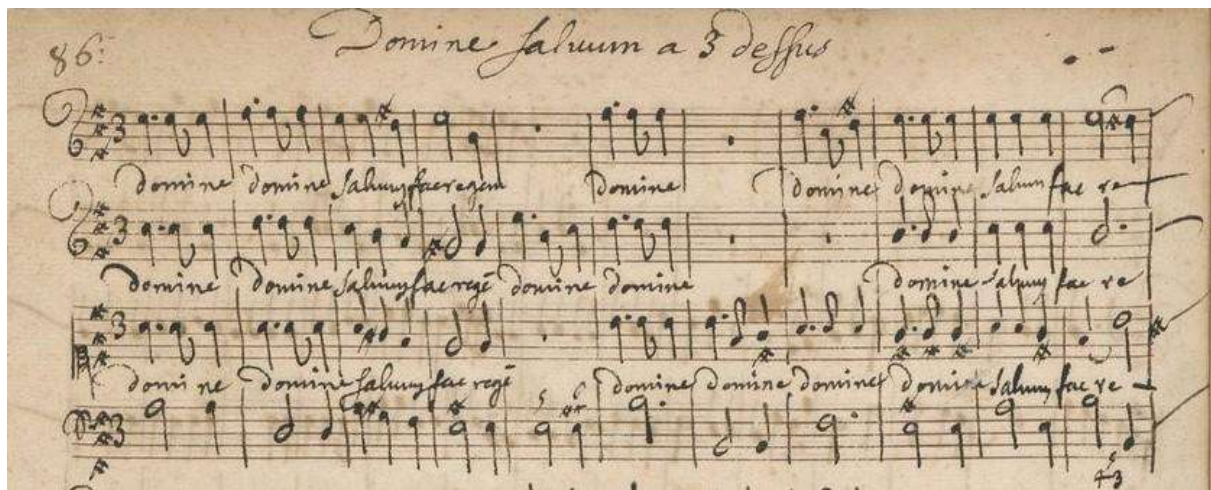 86:
Domine saluum a 3 dessus
3
domine domine saluum fac regem domine domine domine saluum fac re
3
domine domine saluum fac regē domine domine domine saluum fac re
3
domine domine saluum fac regē domine domine domine domine saluum fac re
3 5 6
5
43